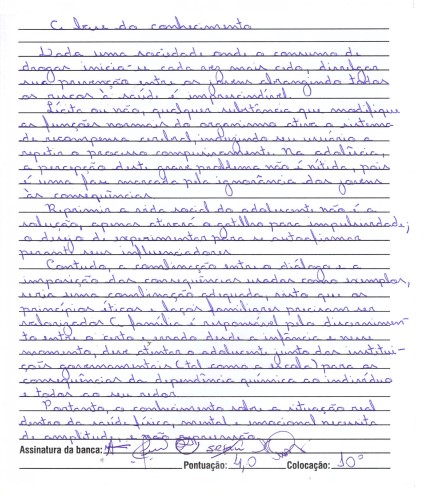 A base do conhecimento
Dada uma sociedade onde o consumo de
drogas inicia-se cada vez mais cedo, divulgar
sua prevenção entre os jovens abrangindo todos
os riscos à saúde é imprescindível.
Lícita ou não, qualquer substância que modifique
as funções normais do organismo ativa o sistema
de recompensa cerebral, induzindo seu usuário a
repetir o processo compulsivamente. Na adolência,
a percepção deste grave problema não é nítida, pois
é uma fase marcada pela ignorância dos jovens
às consequências.
Reprimir a vida social do adolescente não é a
solução, apenas ativará o gatilho para impulsividade;
o desejo de experimentar para se autoafirmar
perante seus influenciadores.
Contudo, a combinação entre o diálogo e a
imposição das consequências usadas como exemplos,
seria uma combinação adequada, visto que os
princípios éticos e laços familiares precisam ser
valorizados. A família é responsável pelo discernimen-
to entre o certo e errado desde a infância e nesse
momento, deve atentar o adolescente junto das institui-
ções governamentais (tal como a escola) para as
consequências da dependência química ao indivíduo
e todos ao seu redor.
Portanto, o conhecimento sobre a situação real
dentro da saúde física, mental e emocional necessita
de amplitude, e não repressão.
Assinatura da banca:
Pontuação: 4,0 Colocação: 10º